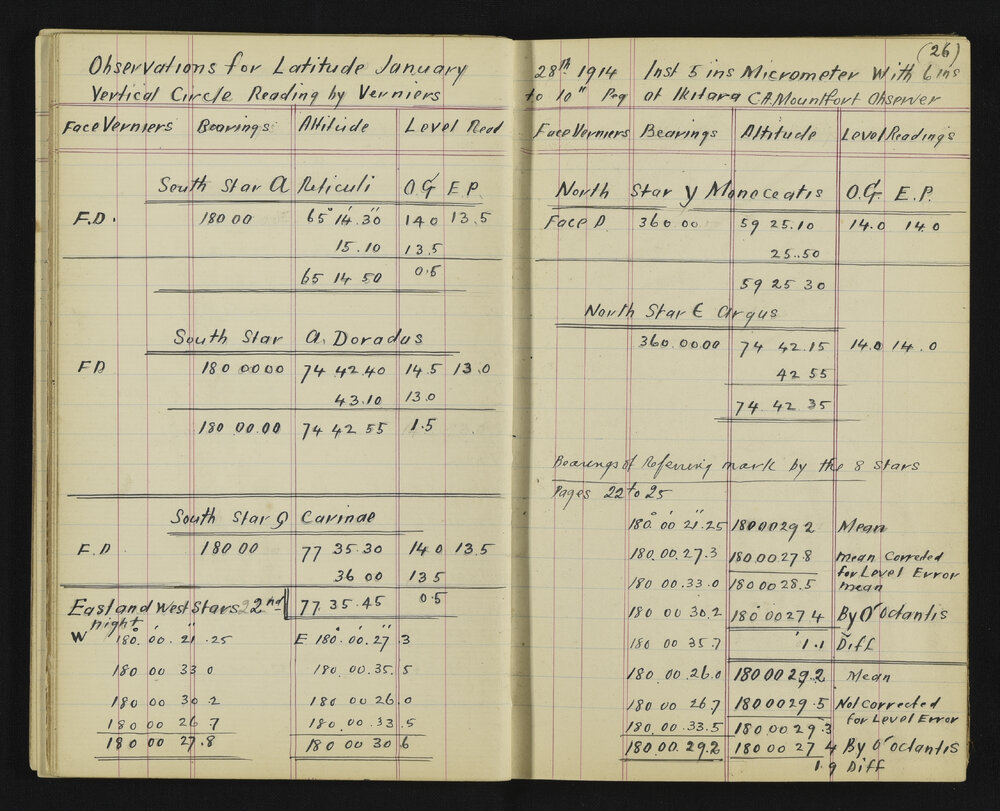 Observations for Latitude January
Vertical Circle Reading by Verniers
Face Verniers Bearings Altitude Level Read
South Star a Reticuli O.G E P.
F.D. 180 00 65° 14' 30" 14 0 13.5
15.10 13.5
65 14 50 0.5
South Star a. Doradus
FD 180 00 00 74 42 40 14.5 13.0
43.10 13.0
180 00.00 74 42 55 1.5
South Star Carinae
F.D 180 00 77 35.30 14 0 13.5
36 00 13 5
East and West Stars 22nd 77.35.45 0.5
night
W 180° 00' 21" .25 E 180° 00' 27" 3
180 00 33 0 180.00.35.5
180 00 30 2 180 00 26.0
180 00 26 7 180 00.33.5
180 00 27.8 180 00 30 6
(26)
28th 1914 Inst 5 ins Micrometer With 6 ins
to 10" Peg at Ikitara C.A. Mountfort Observer
Face Verniers Bearings Altitude Level Readings
North Star y Monoceatis O.G. E.P.
Face D 360.00 59 25.10 14.0 14 0
25..50
59 25 30
North Star E Argus
360.0000 74 42.15 14.0 14.0
42 55
74. 42 35
Bearings of Referring mark by the 8 stars
Pages 22 to 25
180° 00' 21".25 18000292 Mean
180.00.27.3 18000 27.8 mean Corrected
for Level Error
180 00.33.0 1800028.5 mean
180 00 30.2 180°00 27 4 By O' Octantis
180 00 35.7 1.1 Diff
180 00.26.0 180 00 29.2 Mean
180 00 26.7 18000 29.5 Not corrected
for Level Error
180.00.33.5 180 00 29.3
180.00.29.2 180 00 27 4 By O' Octantis
1.9 Diff